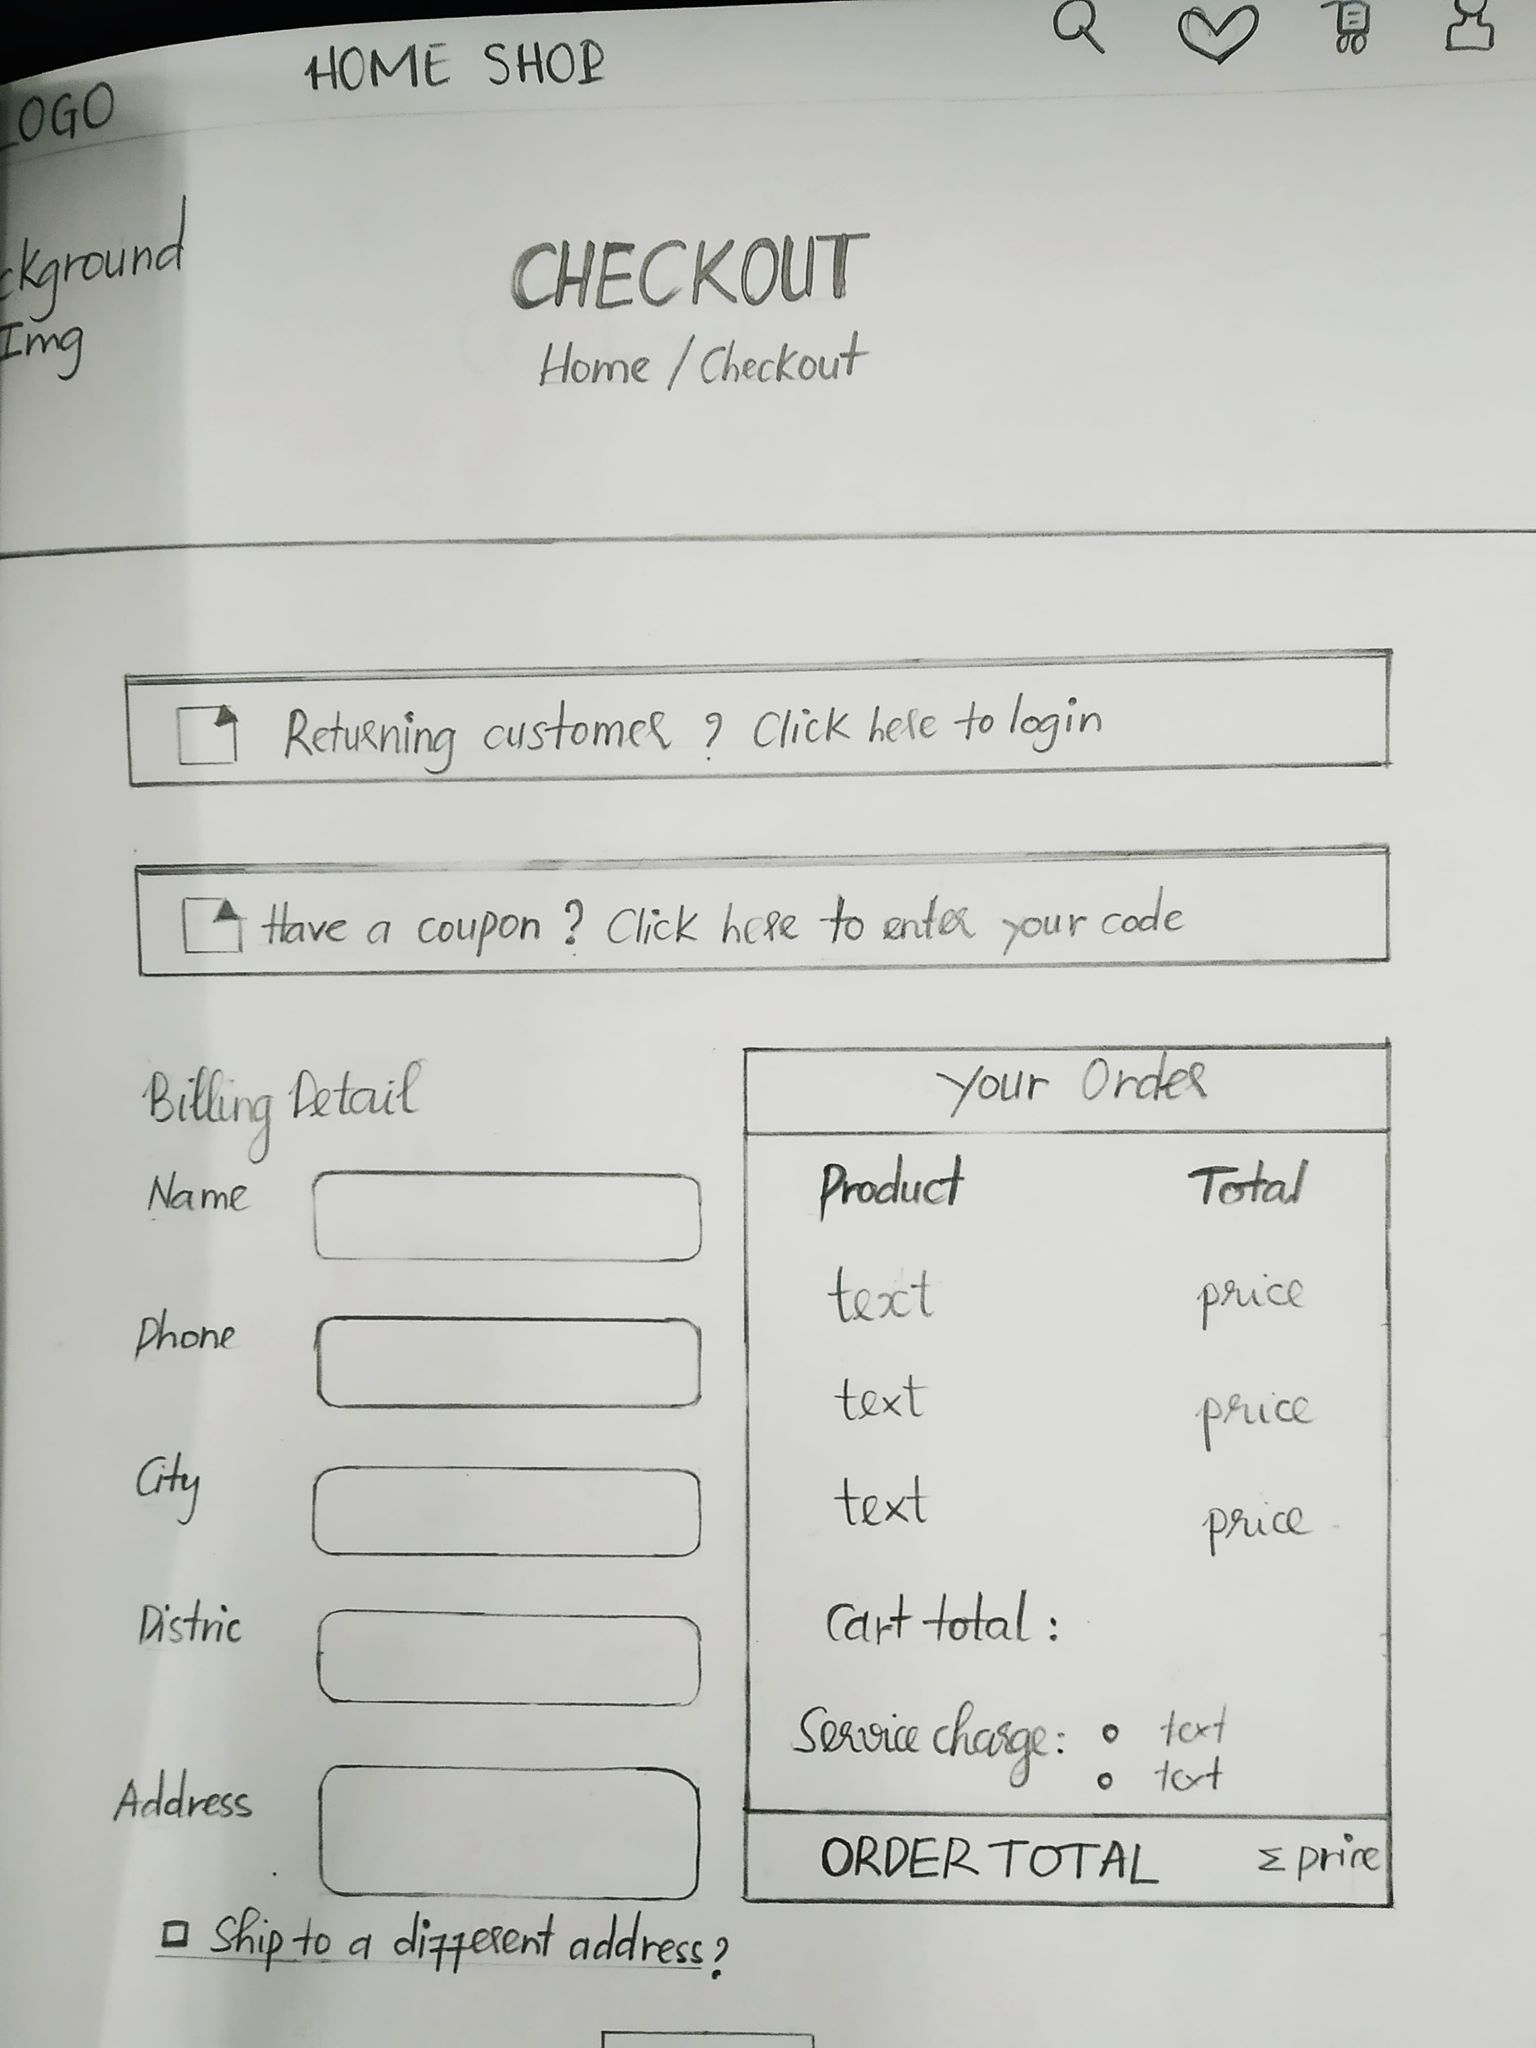 LOGO
HOME SHOP
ckground
Img
CHECKOUT
Home / Checkout
Returning customer ? Click here to login
Have a coupon ? Click here to enter your code
Billing Detail
Name
Phone
City
Distric
Address
Ship to a different address?
Your Order
Product Total
text price
text price
text price
Cart total :
Service charge: • text
• text
ORDER TOTAL Σ price